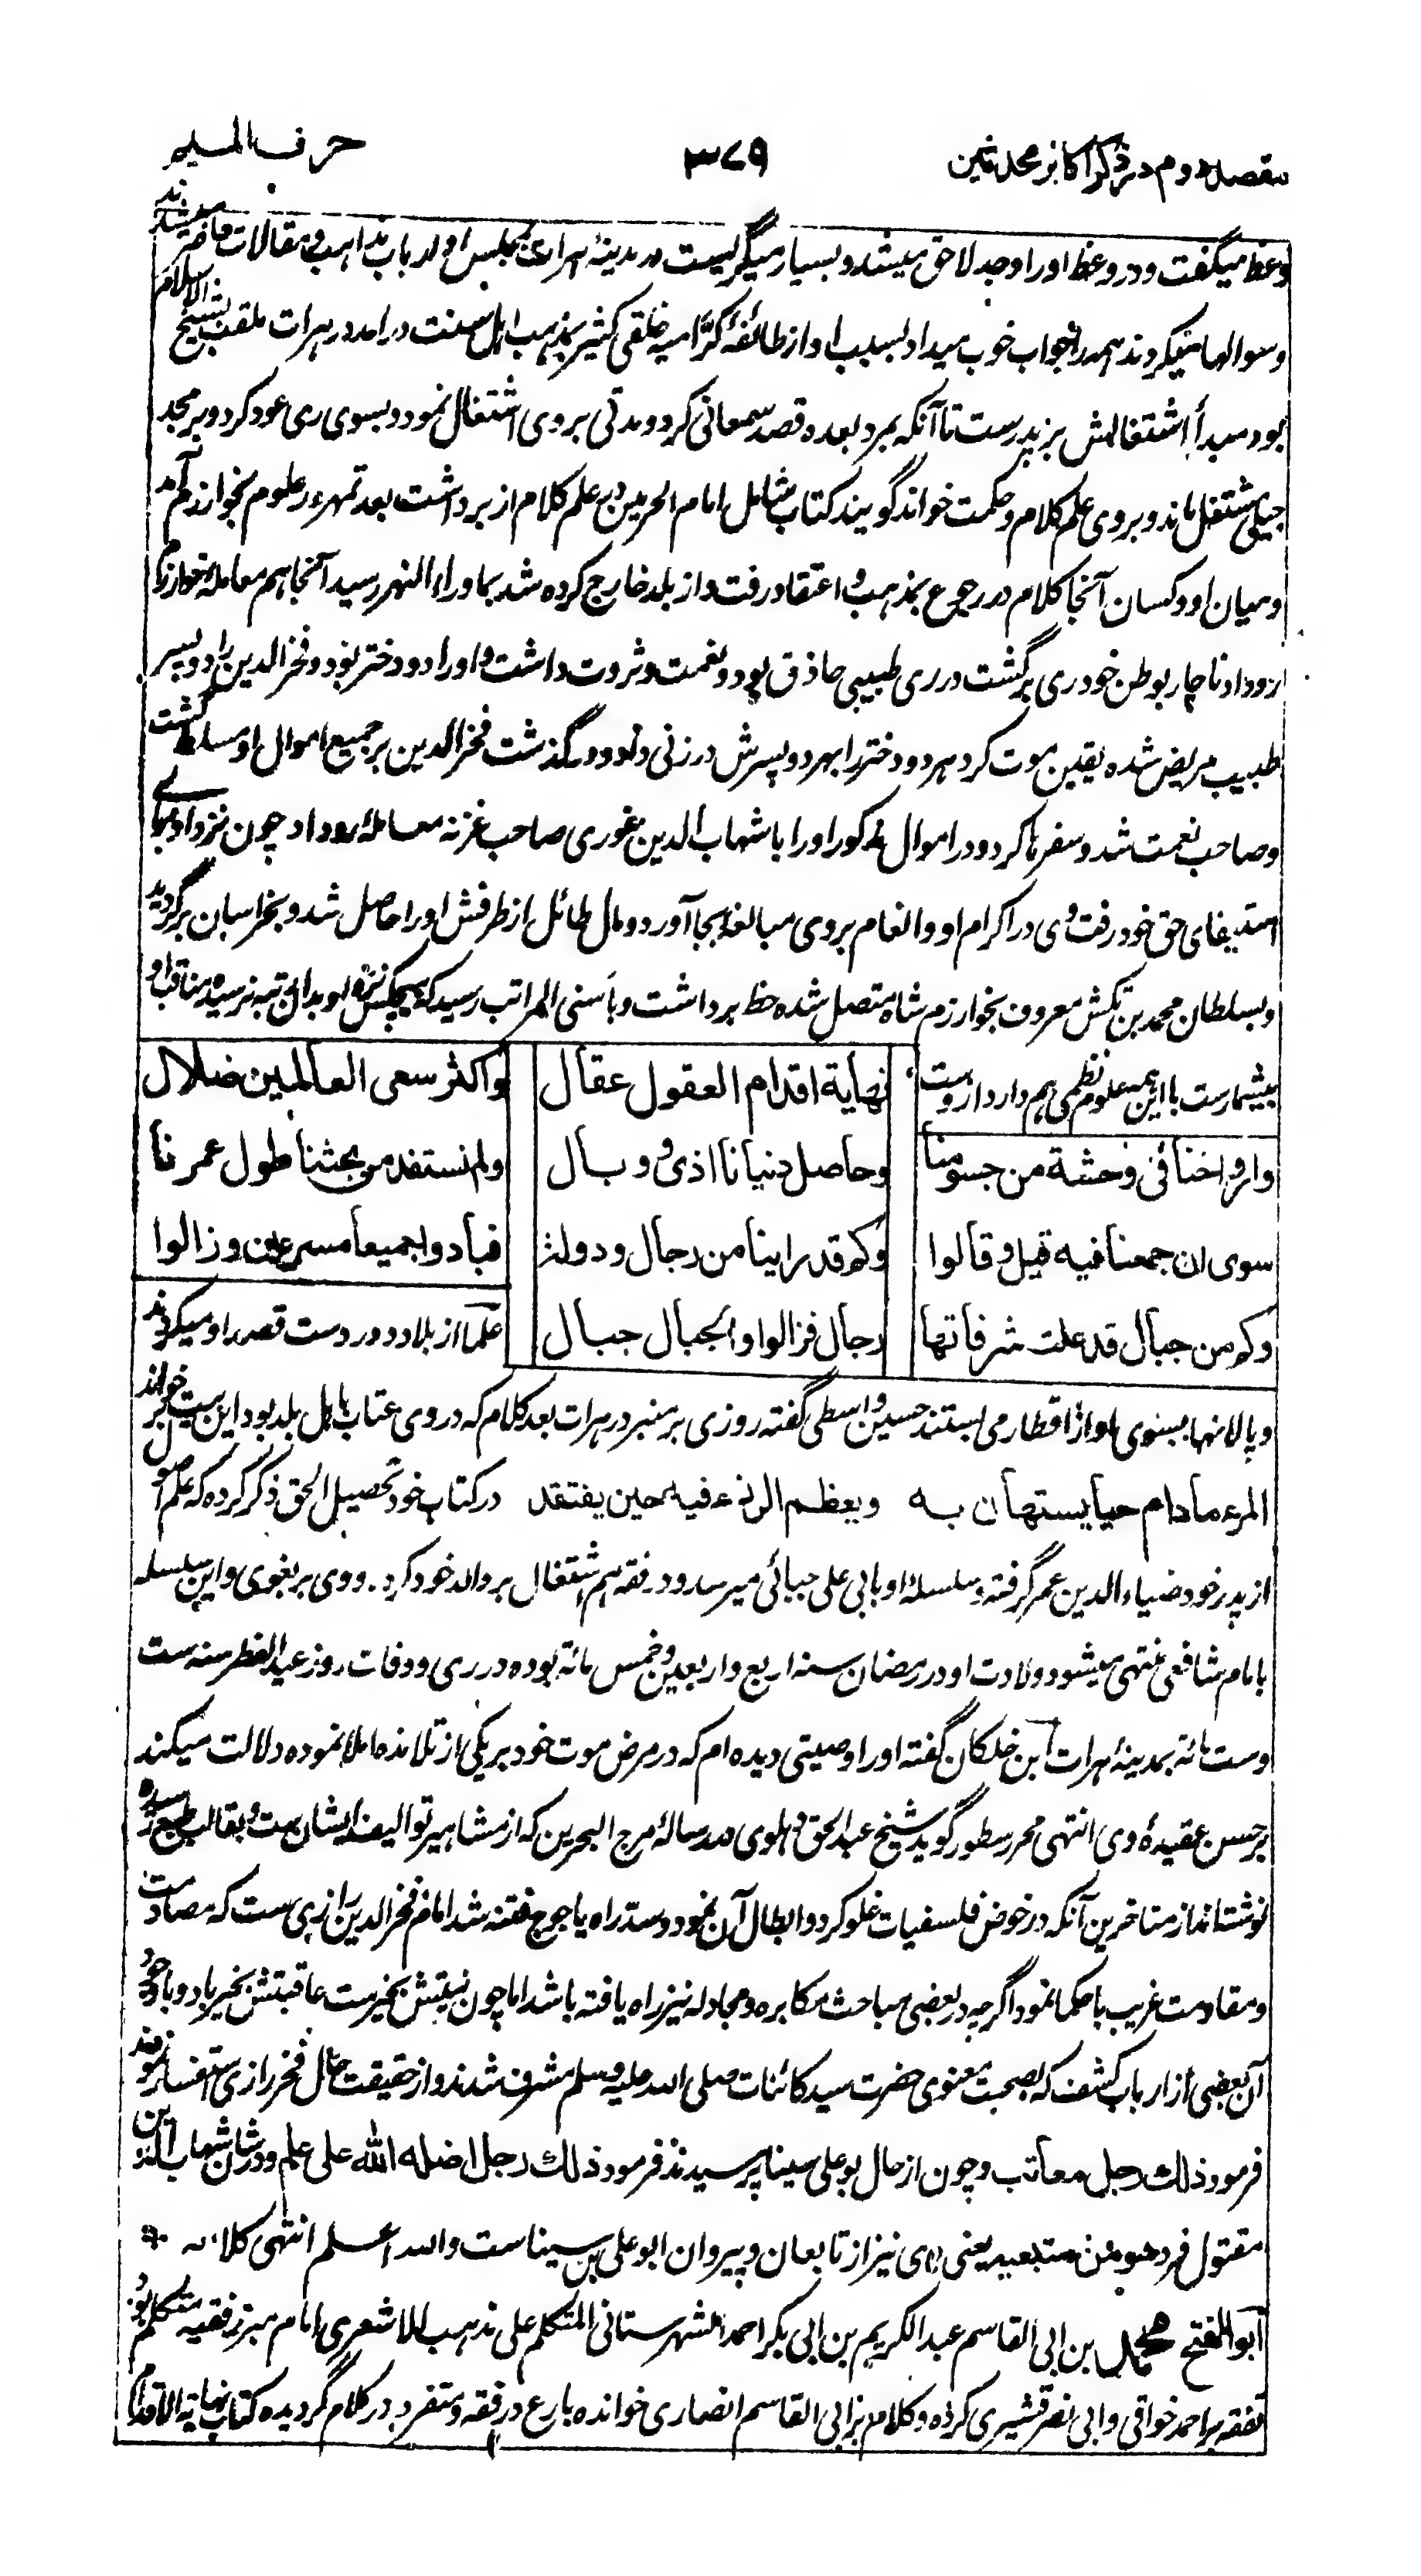 مقصد دوم در ذکر اکابر محدثین ۳۷۹ حرف المیم
وعظ میگفت و در وعظ او را وجد لاحق میشد و بسیار میگریست در مدینهٔ هرات بمجلس او ارباب مذاهب و مقالات حاضر میشدند
و سوالها میکردند همه را جواب خوب میداد بسبب او از طائفهٔ کرّامیه خلقی کثیر بمذهب اهل سنت درامد در هرات ملقب بشیخ الاسلام
بود مبدأ اشتغالش بر پدرست تا آنکه بمرد بعده قصد سمعانی کرد و مدتی بروی اشتغال نمود و بسوی ری عود کرد و بر مجد
جیلی مشتغل ماند و بروی علم کلام و حکمت خواند گویند کتاب شامل امام الحرمین در علم کلام از بر داشت بعد تمهر در علوم بخوارزم آمد
و میان او و کسان آنجا کلام در رجوع بمذهب و اعتقاد رفت و از بلد خارج کرده شد بماوراء النهر رسید آنجا هم معاملهٔ خوارزم
رو داد ناچار بوطن خود ری برگشت در ری طبیبی حاذق بود و نعمت و ثروت داشت و او را دو دختر بود و فخر الدین را دو پسر
طبیب مریض شده یقین موت کرد هر دو دختر را بهر دو پسرش در زنی داد و درگذشت فخر الدین بر جمیع اموال او مسلط گشت
و صاحب نعمت شد و سفرها کرد و در اموال مذکور او را با شهاب الدین غوری صاحب غزنه معاملهٔ رو داد چون نزد او برای
استیفای حق خود رفت وی در اکرام او و انعام بروی مبالغه بجا آورد و مال طائل از طرفش او را حاصل شد و بخراسان برگردید
و بسلطان محمد بن تکش معروف بخوارزم شاه متصل شده حظ برداشت و باسنی المراتب رسید که هیچکس نزد او بدان رتبه نرسیده مناقب او
بیشمارست با این همه علوم نظمی هم دارد ازوست نهایة اقدام العقول عقال واکثر سعی العالمین ضلال
وارواحنا فی وحشة من جسومنا وحاصل دنیانا اذی و وبال ولم نستفد من بحثنا طول عمرنا
سوی ان جمعنا فیه قیل و قالوا وکم قد راینا من رجال و دولة فبادوا جمیعا مسرعین و زالوا
وکم من جبال قد علت شرفاتها رجال فزالوا والجبال جبال علما از بلاد دور دست قصد او میکردند
و پالانها بسوی او از اقطار می بستند حسین واسطی گفته روزی بر منبر در هرات بعد کلام که در وی عتاب باهل بلد بود این بیت بر خواند
المرء مادام حیا یستهان به ویعظم الرزء فیه حین یفتقد در کتاب خود تحصیل الحق ذکر کرده که علم اصول
از پدر خود ضیاء الدین عمر گرفته و سلسلهٔ او بابی علی جبائی میرسد و در فقه هم اشتغال بر والد خود کرد. و وی بر بغوی و این سلسله
بامام شافعی منتهی میشود ولادت او در رمضان سنه اربع و اربعین و خمس مائة بوده در ری و وفات روز عید الفطر سنه ست
وست مائة بمدینهٔ هرات ابن خلکان گفته او را وصیتی دیده ام که در مرض موت خود بر یکی از تلامذه املا نموده دلالت میکند
بر حسن عقیدهٔ وی انتهی محرر سطور گوید شیخ عبد الحق دهلوی در رسالهٔ مرج البحرین که از مشاهیر توالیف ایشان ست و بقالب طبع رسیده
نوشته اند از متاخرین آنکه در خوض فلسفیات غلو کرد و ابطال آن نمود و سدّ راه یاجوج فتنه شد امام فخر الدین رازی ست که مصادمت
و مقاومت غریب با حکما نمود اگرچه در بعضی مباحث مکابره و مجادله نیز راه یافته باشد اما چون نیتش بخیرست عاقبتش بخیر باد و باوجود
آن بعضی از ارباب کشف که بصحبت معنوی حضرت سید کائنات صلی الله علیه وسلم مشرف شدند و از حقیقت حال فخر رازی استفسار نمودند
فرمود ذلك رجل معاتب و چون از حال بو علی سینا پرسیدند فرمود ذلك رجل اضله الله علی علم و در شان شهاب الدین
مقتول فرمود هو من متبعیه یعنی وی نیز از تابعان و پیروان ابو علی بن سینا ست والله اعلم انتهی کلامه
ابو الفتح محمد بن ابی القاسم عبد الکریم بن ابی بکر احمد الشهرستانی المتکلم علی مذهب الاشعری امام مبرز فقیه متکلم بود
تفقه بر احمد خوافی و ابی نصر قشیری کرده و کلام بر ابی القاسم انصاری خوانده بارع در فقه و متفرد در کلام گردیده کتاب نهایة الاقدام